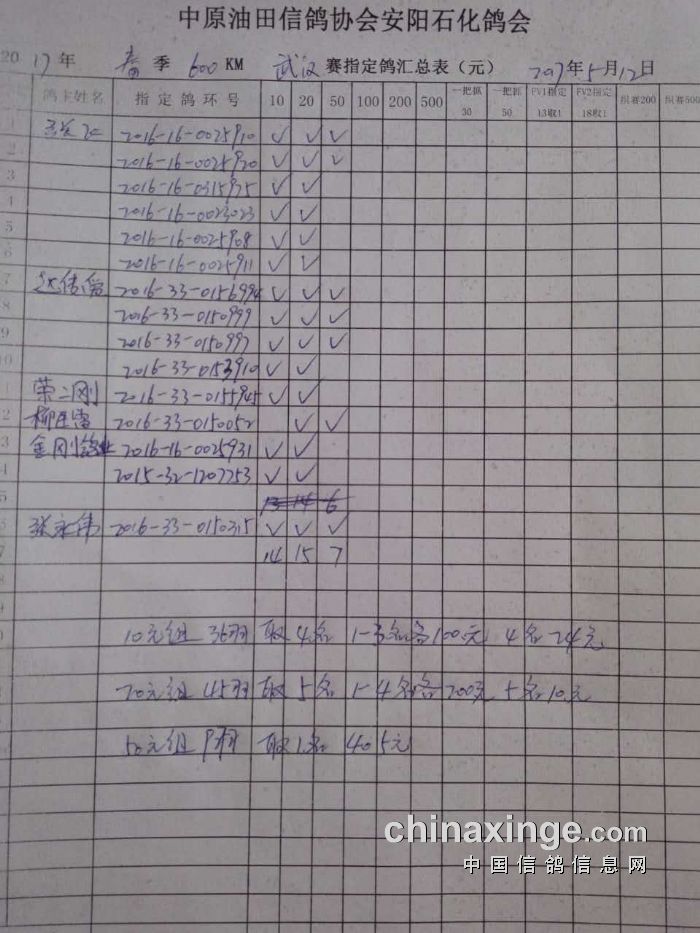 中原油田信鸽协会安阳石化鸽会
2017年 春 季 600 KM 武汉 赛指定鸽汇总表（元） 2017年5月12日
鸽卡姓名 指定鸽环号 10 20 50 100 200 500 一把抓30 一把抓50 PV1指定13取1 PV2指定18取1 组赛200 组赛500
1 2016-16-0025910 ✓ ✓ ✓
2 2016-16-0025920 ✓ ✓ ✓
3 2016-16-0315975 ✓ ✓
4 2016-16-0023023 ✓ ✓
5 2016-16-0025908 ✓ ✓
6 2016-16-0025911 ✓ ✓
7 2016-33-0156994 ✓ ✓ ✓
8 2016-33-0150999 ✓ ✓ ✓
9 2016-33-0150997 ✓ ✓ ✓
10 2016-33-0153910 ✓ ✓
1 荣二刚 2016-33-0155945 ✓ ✓
2 2016-33-0150052 ✓ ✓
3 金刚鸽业 2016-16-0025931 ✓ ✓
4 2015-32-1207253 ✓ ✓
5 13 14 6
6 张永伟 2016-33-0150315 ✓ ✓ ✓
7 14 15 7
10元组 36羽 取4名 1-3名各100元 4名24元
20元组 45羽 取5名 1-4名各200元 5名10元
50元组 9羽 取1名 405元
chinaxinge.com
中国信鸽信息网